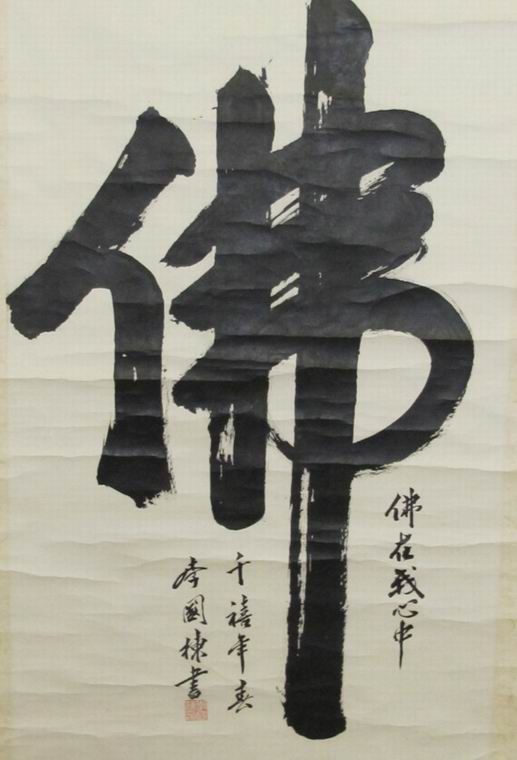 佛
佛在我心中
千禧年春
李國棟書